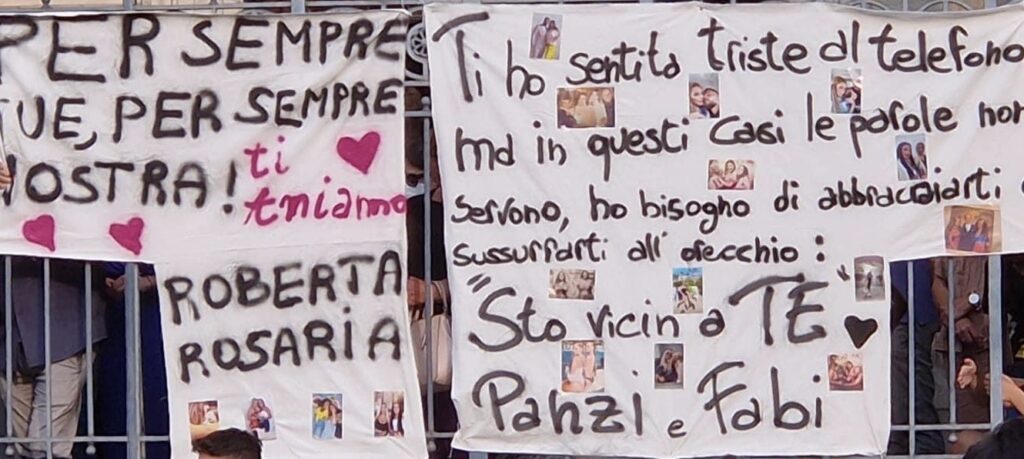 PER SEMPRE
TUE, PER SEMPRE
NOSTRA!
ti
amiamo
ROBERTA
ROSARIA
Ti ho sentita triste al telefono
ma in questi casi le parole non
servono, ho bisogno di abbracciarti e
sussurrarti all'orecchio:
"Sto vicin a TE"
Panzi e Fabi